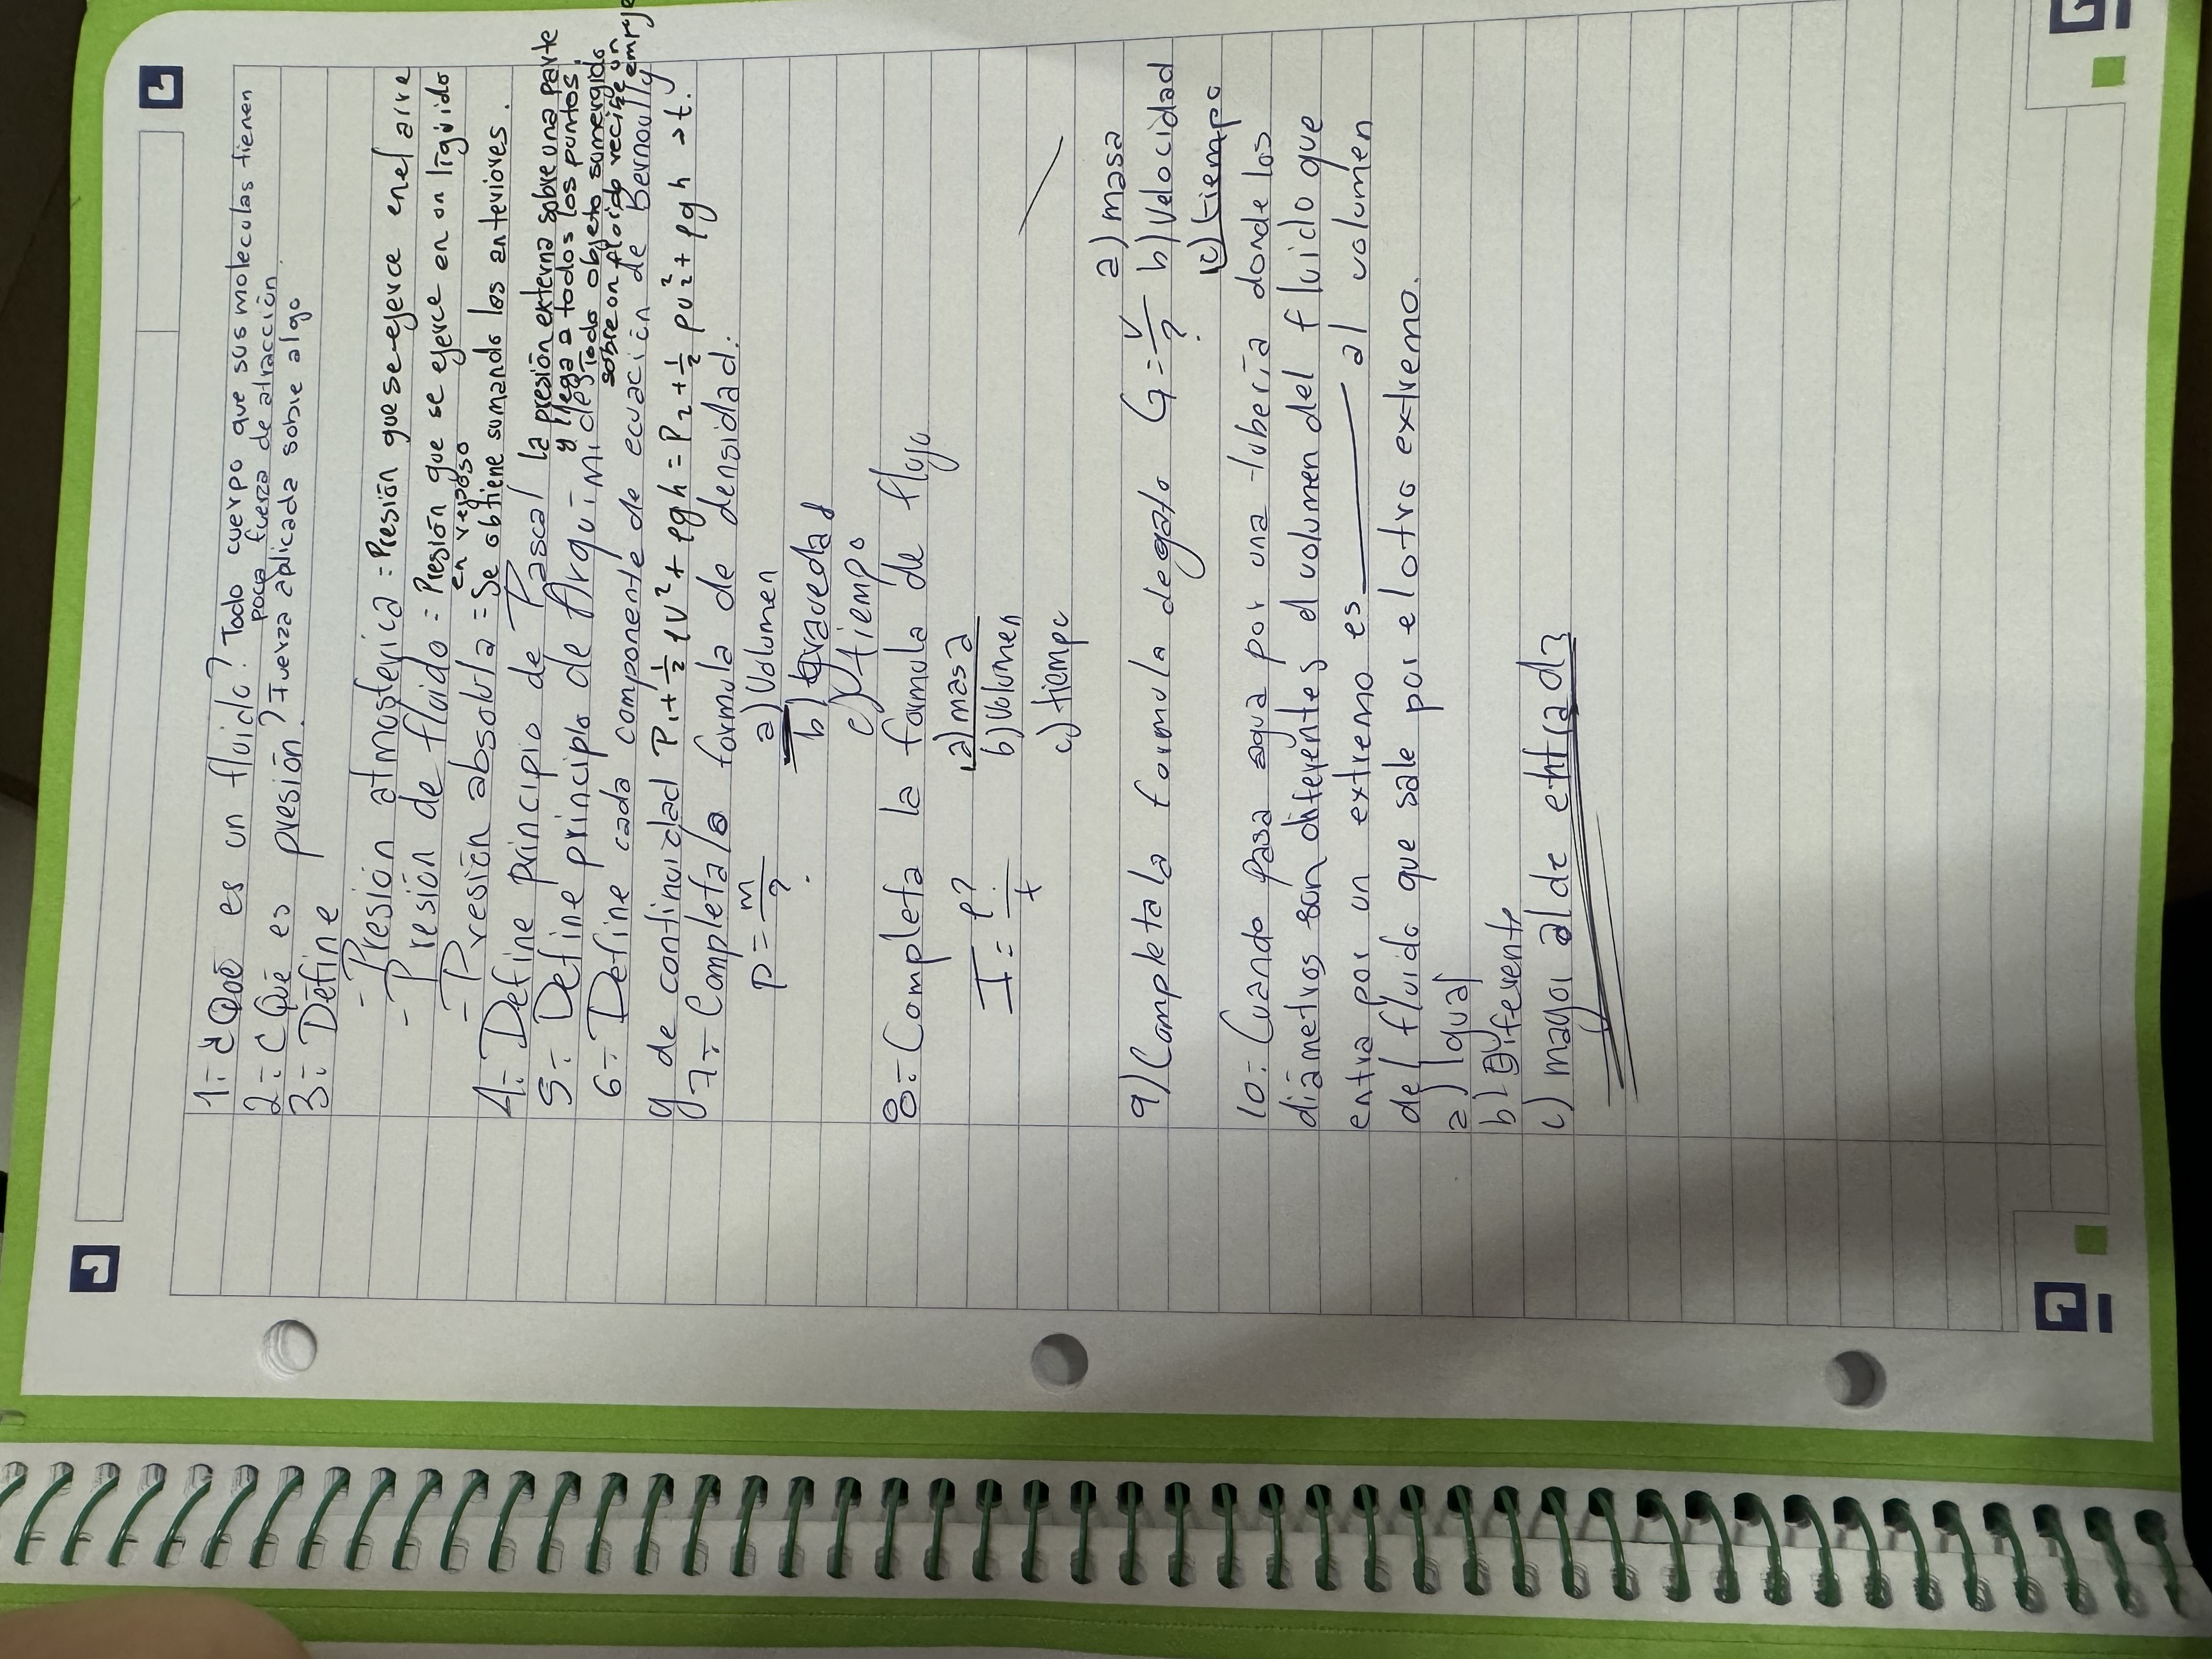 1=¿Qué es un fluido? Todo cuerpo que sus moleculas tienen
poca fuerza de atracción
2=¿Qué es presión? Fuerza aplicada sobre algo
3= Define
- Presión atmosferica = Presión que se ejerce en el aire
- Presión de fluido = Presión que se ejerce en un líquido
en reposo
- Presión absoluta = Se obtiene sumando los anteriores.
4= Define principio de Pascal la presión externa sobre una parte
y llega a todos los puntos.
5= Define principio de Arquimides Todo objeto sumergido
sobre un fluido recibe un empuje
6= Define cada componente de ecuación de Bernoully
y de continuidad P1 + 1/2 ρV² + ρgh = P2 + 1/2 ρv2² + ρgh → t.
7= Completa la formula de densidad:
P = m/? a) Volumen
b) Gravedad
c) tiempo
8= Completa la formula de flujo
I = ρ?/t a) masa
b) Volumen
c) tiempo
9) Completa la formula de gato G = V/? a) masa
b) Velocidad
c) tiempo
10= Cuando pasa agua por una tuberia donde los
diámetros son diferentes el volumen del fluido que
entra por un extremo es ____ al volumen
del fluido que sale por el otro extremo.
a) Igual
b) Diferente
c) mayor al de entrada